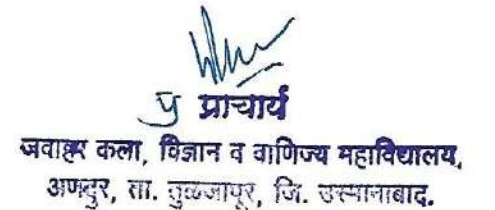 प्र प्राचार्य
जवाहर कला, विज्ञान व वाणिज्य महाविद्यालय,
अणदुर, ता. तुळजापूर, जि. उस्मानाबाद.